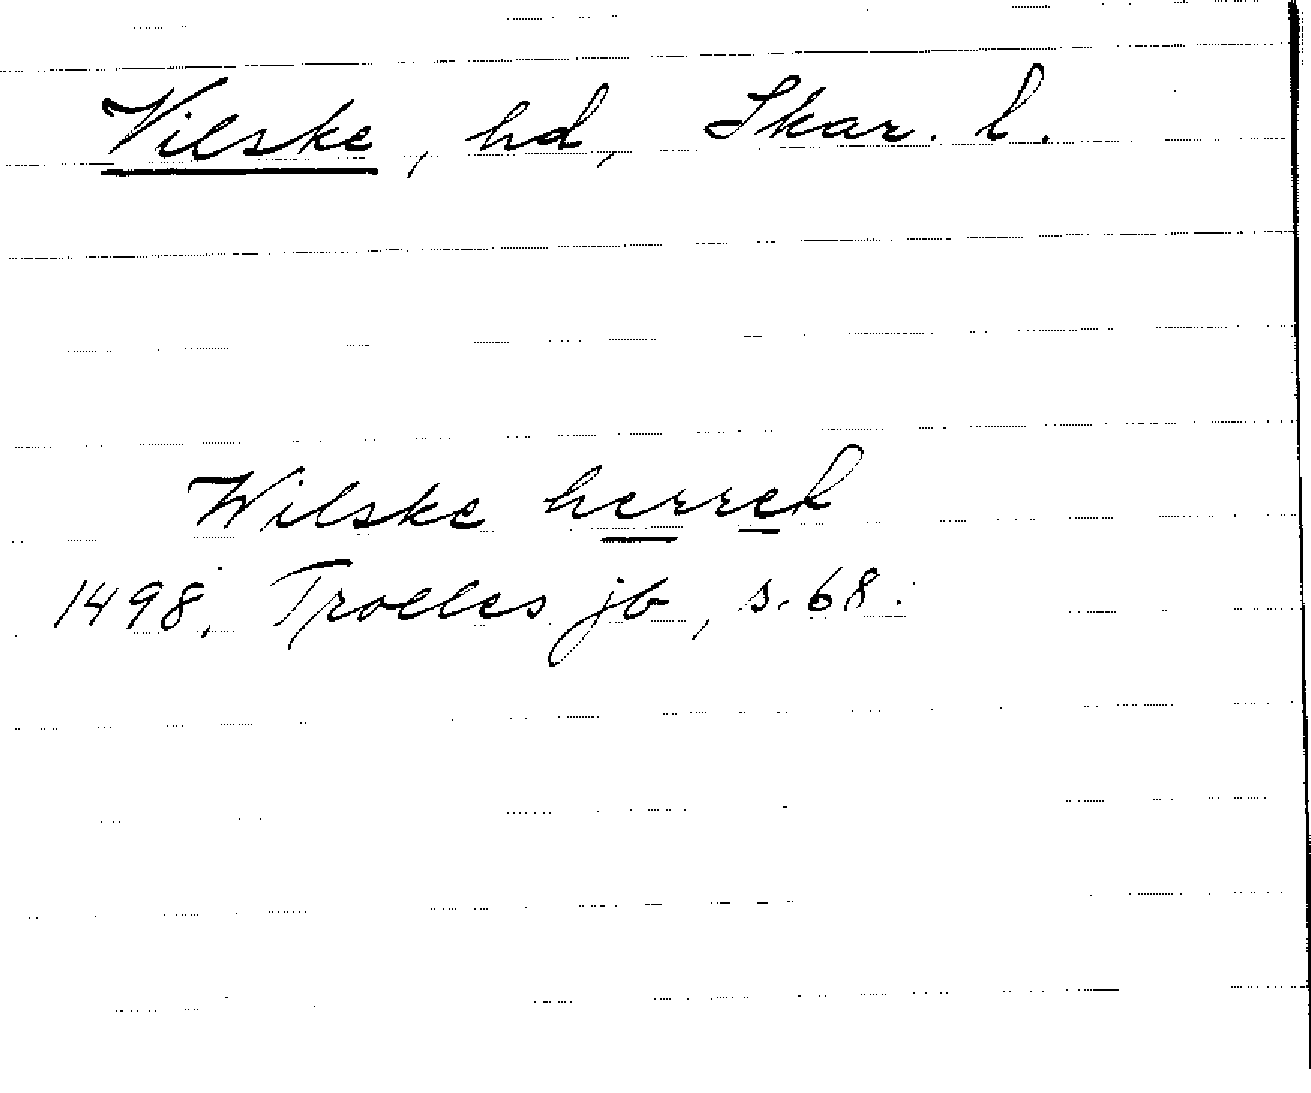 Vilske, hd, Skar. l.
Wilske herred
1498, Trolles jb, s. 68.